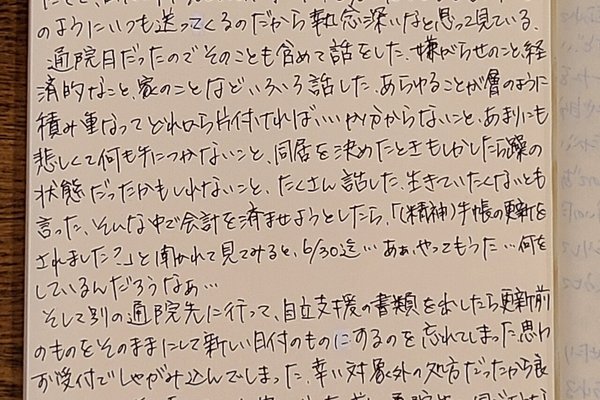 のようにいつも送ってくるのだから執念深いなと思って見ている。
通院日だったのでそのことも含めて話をした。嫌がらせのこと、経
済的なこと、家のことなどいろいろ話した。あらゆることが層のように
積み重なってどれから片付ければいいか分からないこと、あまりにも
悲しくて何も手につかないこと、同居を決めたときもしかしたら躁の
状態だったかもしれないこと、たくさん話した。生きていたくないとも
言った。そんな中で会計を済ませようとしたら、「(精神)手帳の更新を
されました?」と聞かれて見てみると、6/30迄…あぁ、やってもうた…何を
しているんだろうなぁ…
そして別の通院先に行って、自立支援の書類を出したら更新前
のものをそのままにして新しい日付のものにするのを忘れてしまった。思わ
ず受付でしゃがみ込んでしまった。幸い対象外の処方だったから良